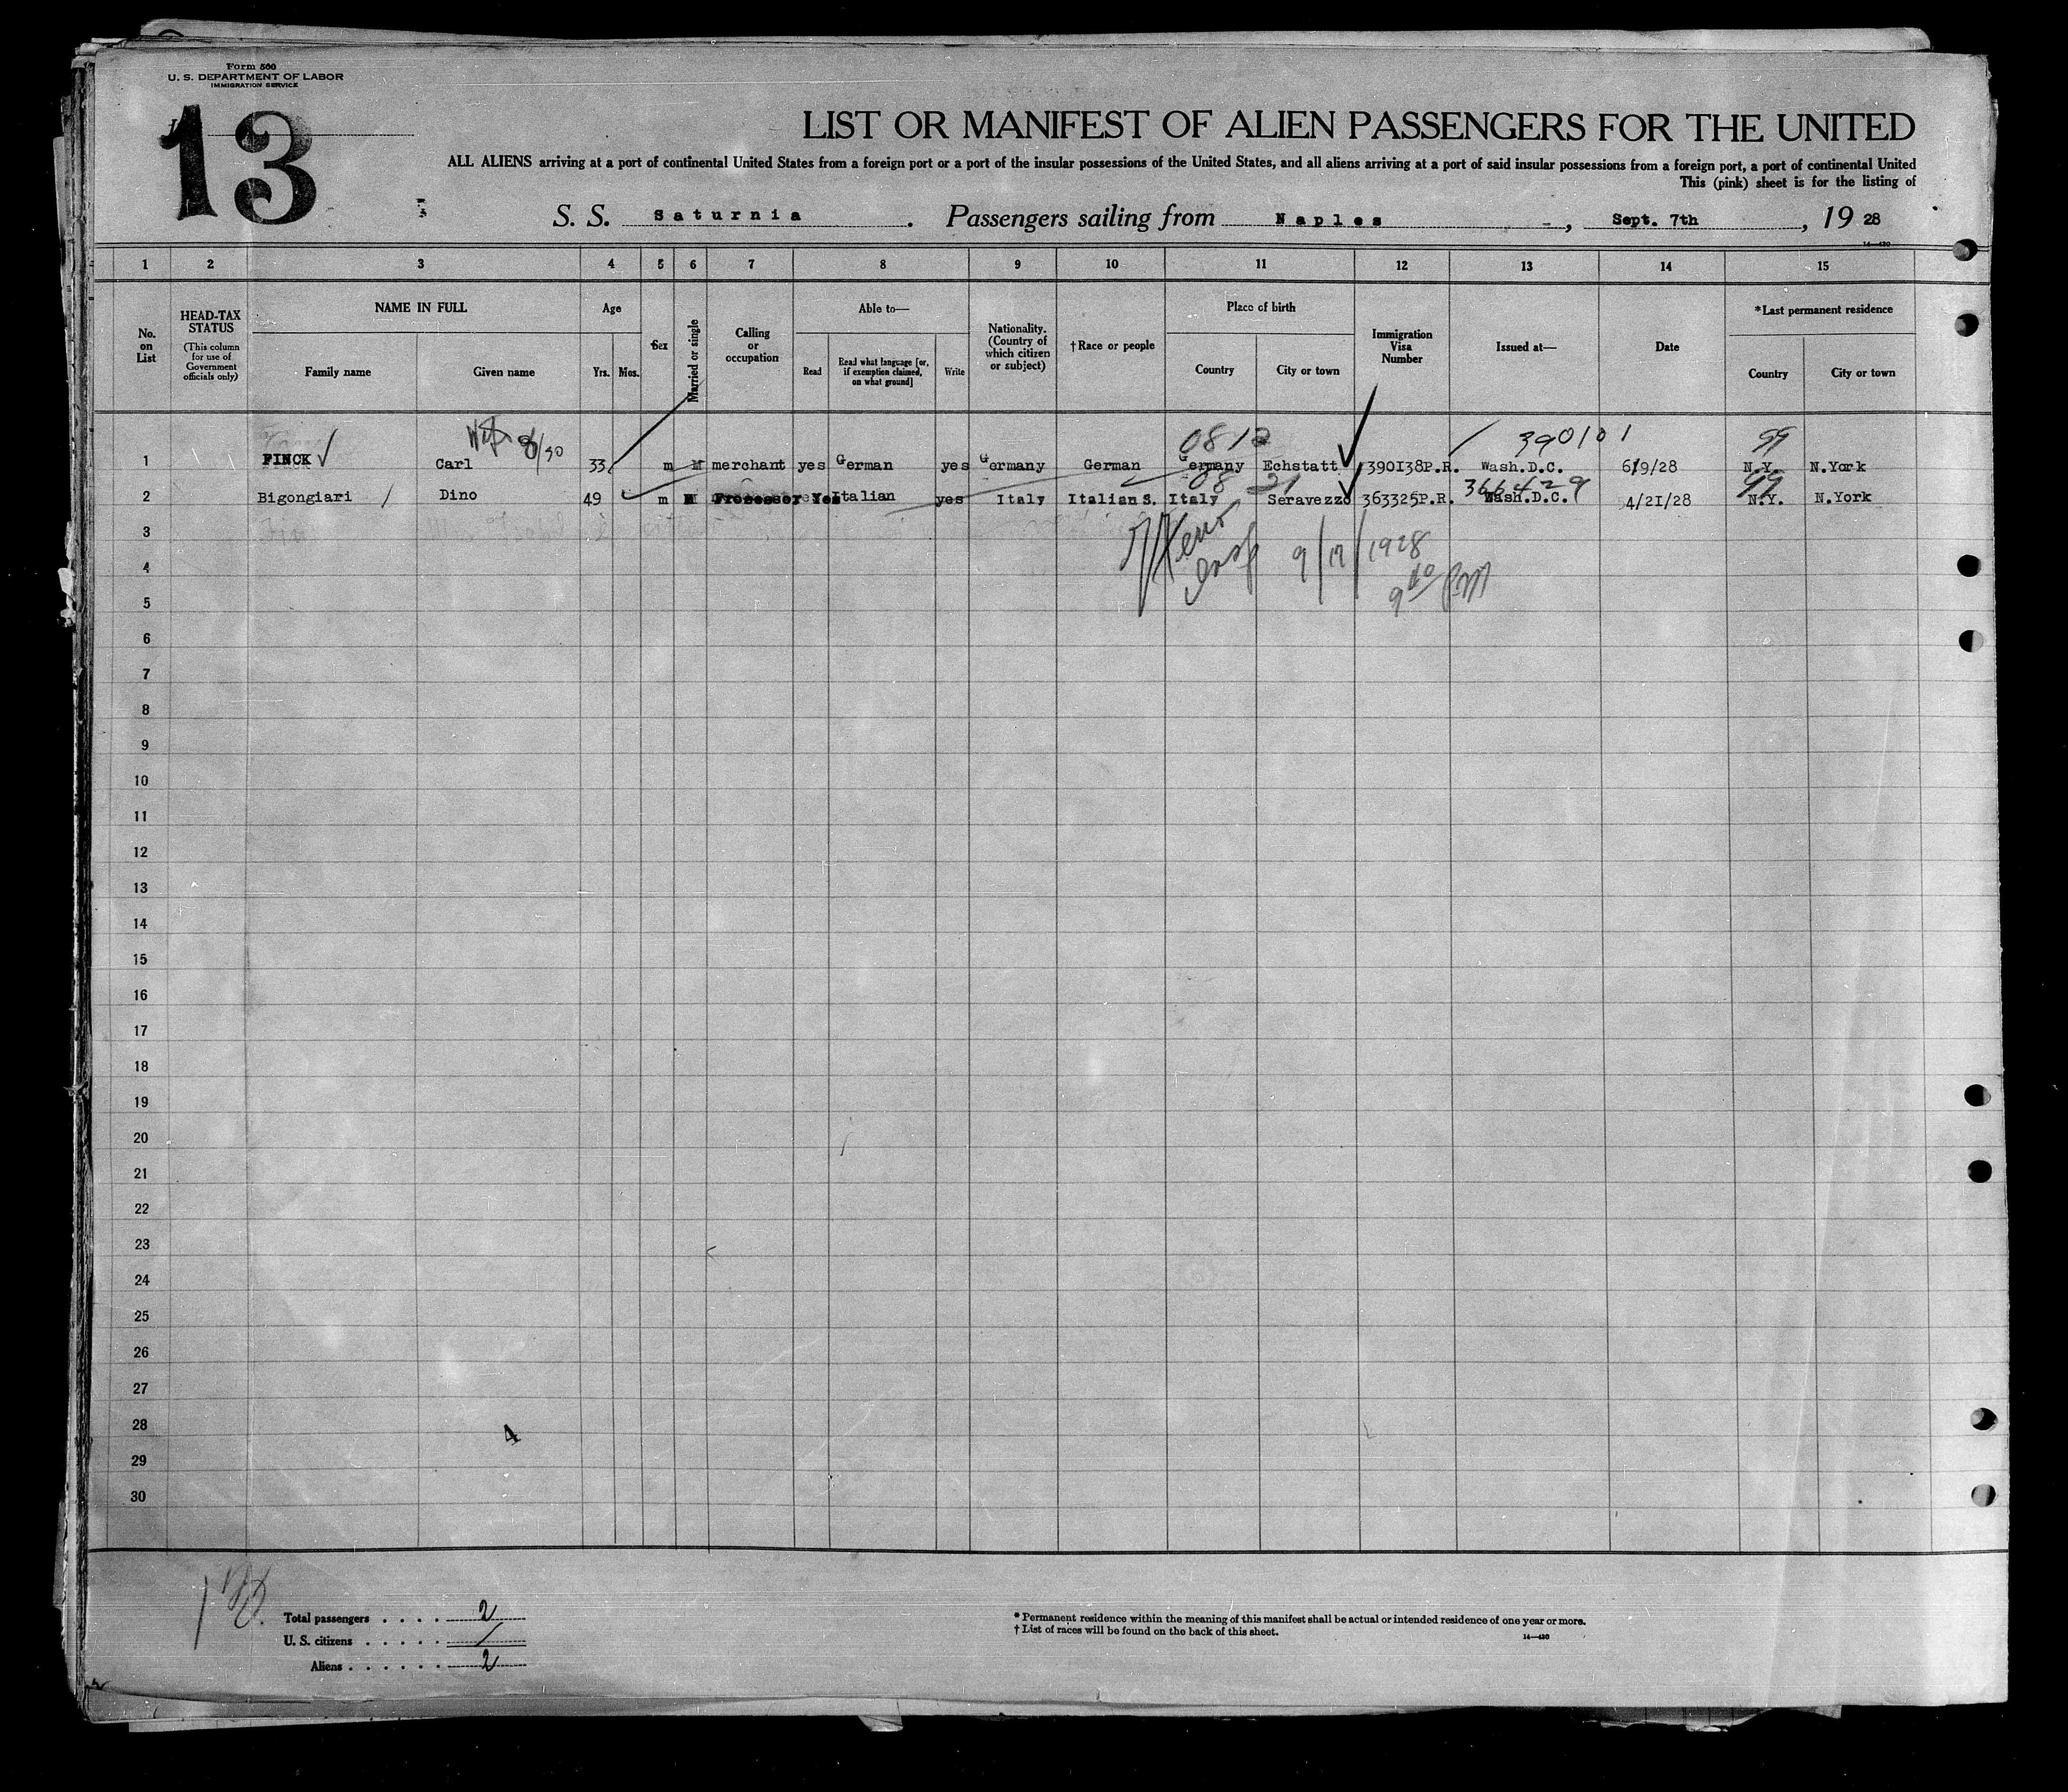 Form 500
U. S. DEPARTMENT OF LABOR
IMMIGRATION SERVICE
13
LIST OR MANIFEST OF ALIEN PASSENGERS FOR THE UNITED
ALL ALIENS arriving at a port of continental United States from a foreign port or a port of the insular possessions of the United States, and all aliens arriving at a port of said insular possessions from a foreign port, a port of continental United
This (pink) sheet is for the listing of
S. S. Saturnia. Passengers sailing from Naples, Sept. 7th, 19 28
14—430
1 2 3 4 5 6 7 8 9 10 11 12 13 14 15
No. on List
HEAD-TAX STATUS
(This column for use of Government officials only)
NAME IN FULL
Family name
Given name
Age
Yrs.
Mos.
Sex
Married or single
Calling or occupation
Able to—
Read
Read what language [or, if exemption claimed, on what ground]
Write
Nationality. (Country of which citizen or subject)
†Race or people
Place of birth
Country
City or town
Immigration Visa Number
Issued at—
Date
*Last permanent residence
Country
City or town
0812 390101 99
1 FINCK Carl 33 m M merchant yes German yes Germany German Germany Echstatt 390138P.R. Wash.D.C. 6/9/28 N.Y. N.York
08 21 366429 99
2 Bigongiari Dino 49 m M Professor Yes Italian yes Italy Italian S. Italy Seravezzo 363325P.R. Wash.D.C. 4/21/28 N.Y. N.York
3
9/17/1928
4
5
6
7
8
9
10
11
12
13
14
15
16
17
18
19
20
21
22
23
24
25
26
27
28
4
29
30
Total passengers . . . . 2
U. S. citizens . . . . . /
Aliens . . . . . . 2
* Permanent residence within the meaning of this manifest shall be actual or intended residence of one year or more.
† List of races will be found on the back of this sheet.
14—430